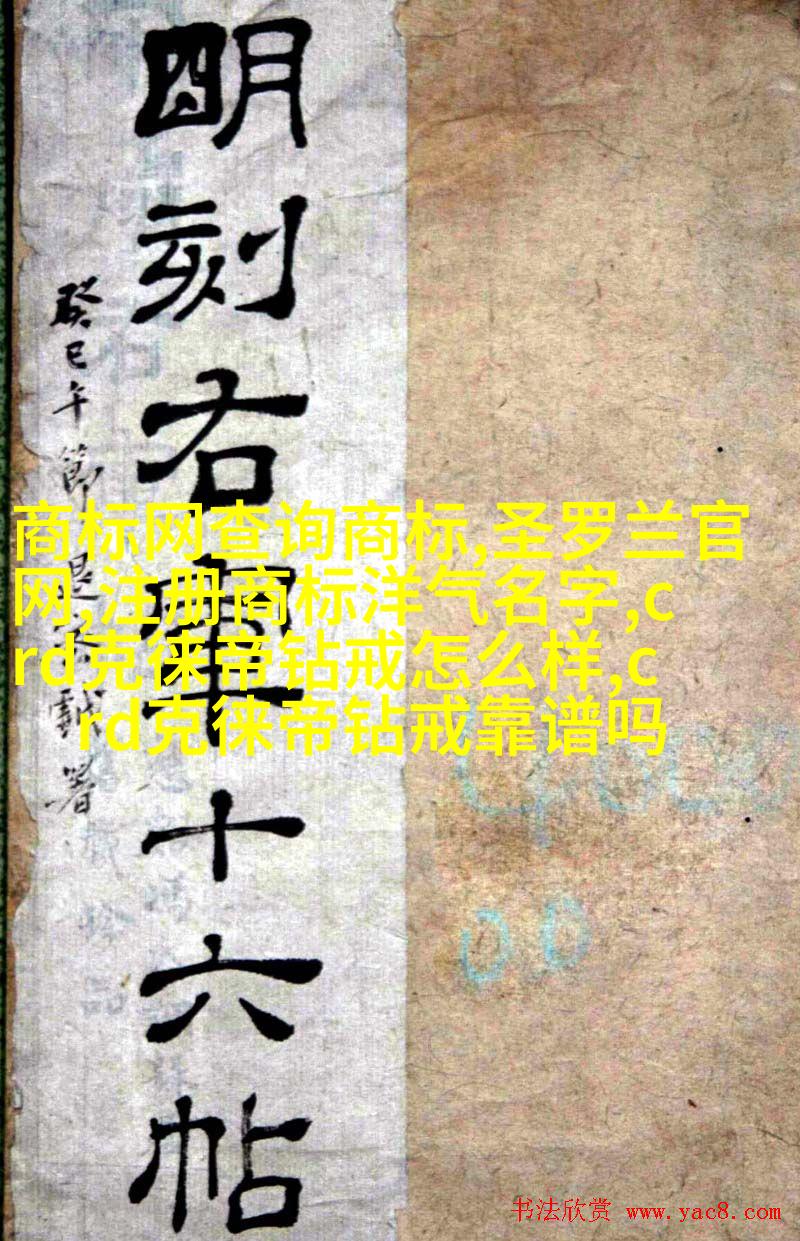 明刻右軍十六帖
癸巳午節退
署
商标网查询商标,圣罗兰官
网,注册商标洋气名字,c
rd克徕帝钻戒怎么样,c
rd克徕帝钻戒靠谱吗
00
书法欣赏 www.yac8.com